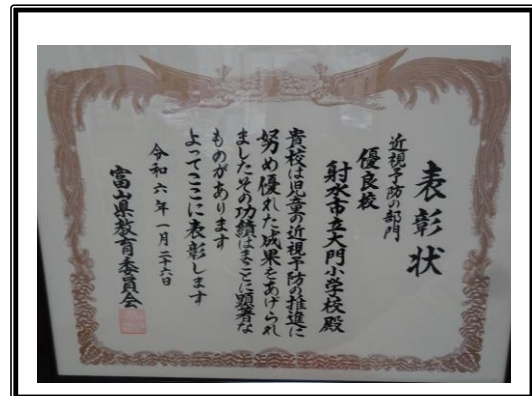 表彰状
近視予防の部門
優良校
射水市立大門小学校殿
貴校は児童の近視予防の推進に
努め優れた成果をあげられ
ましたその功績はまことに顕著な
ものがあります
よってここに表彰します
令和六年一月二十六日
富山県教育委員会